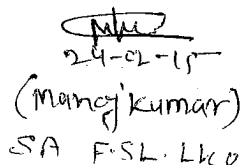 24-02-15
(Manoj Kumar)
SA F.SL. LKO